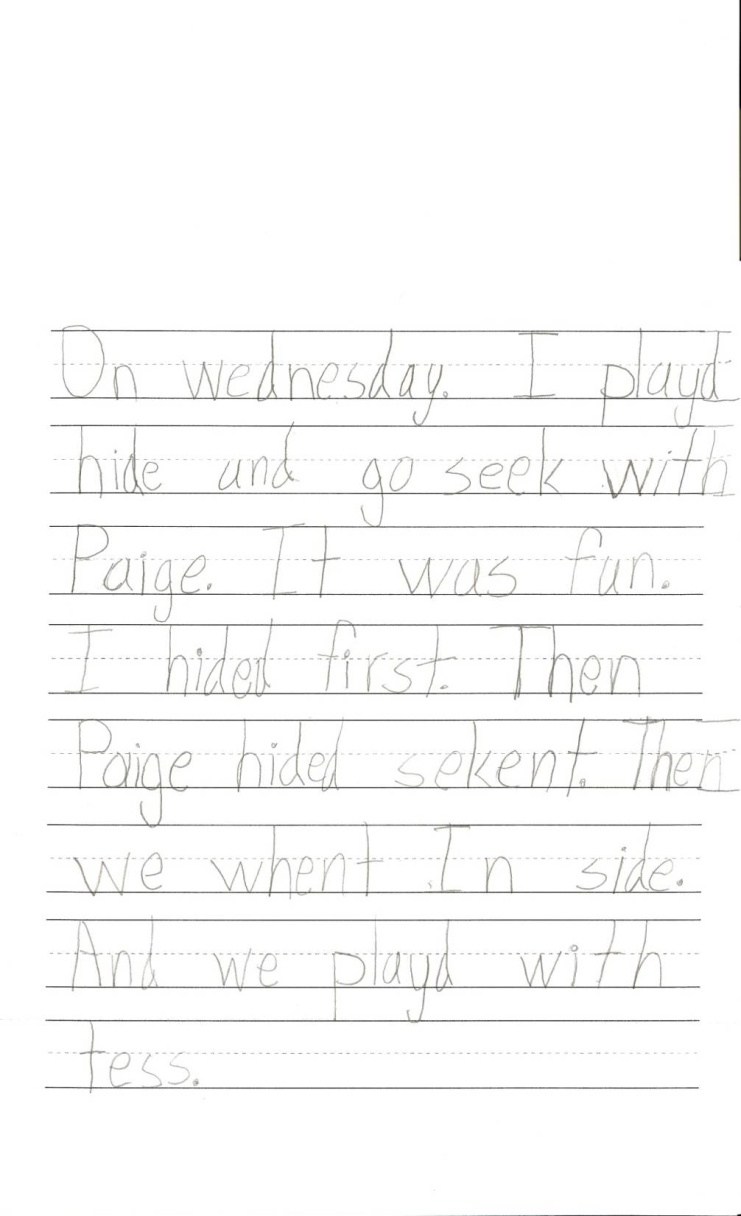 On wednesday. I playd
hide and go seek with
Paige. It was fun.
I hided first. Then
Paige hided sekent. Then
we whent In side.
And we playd with
tess.